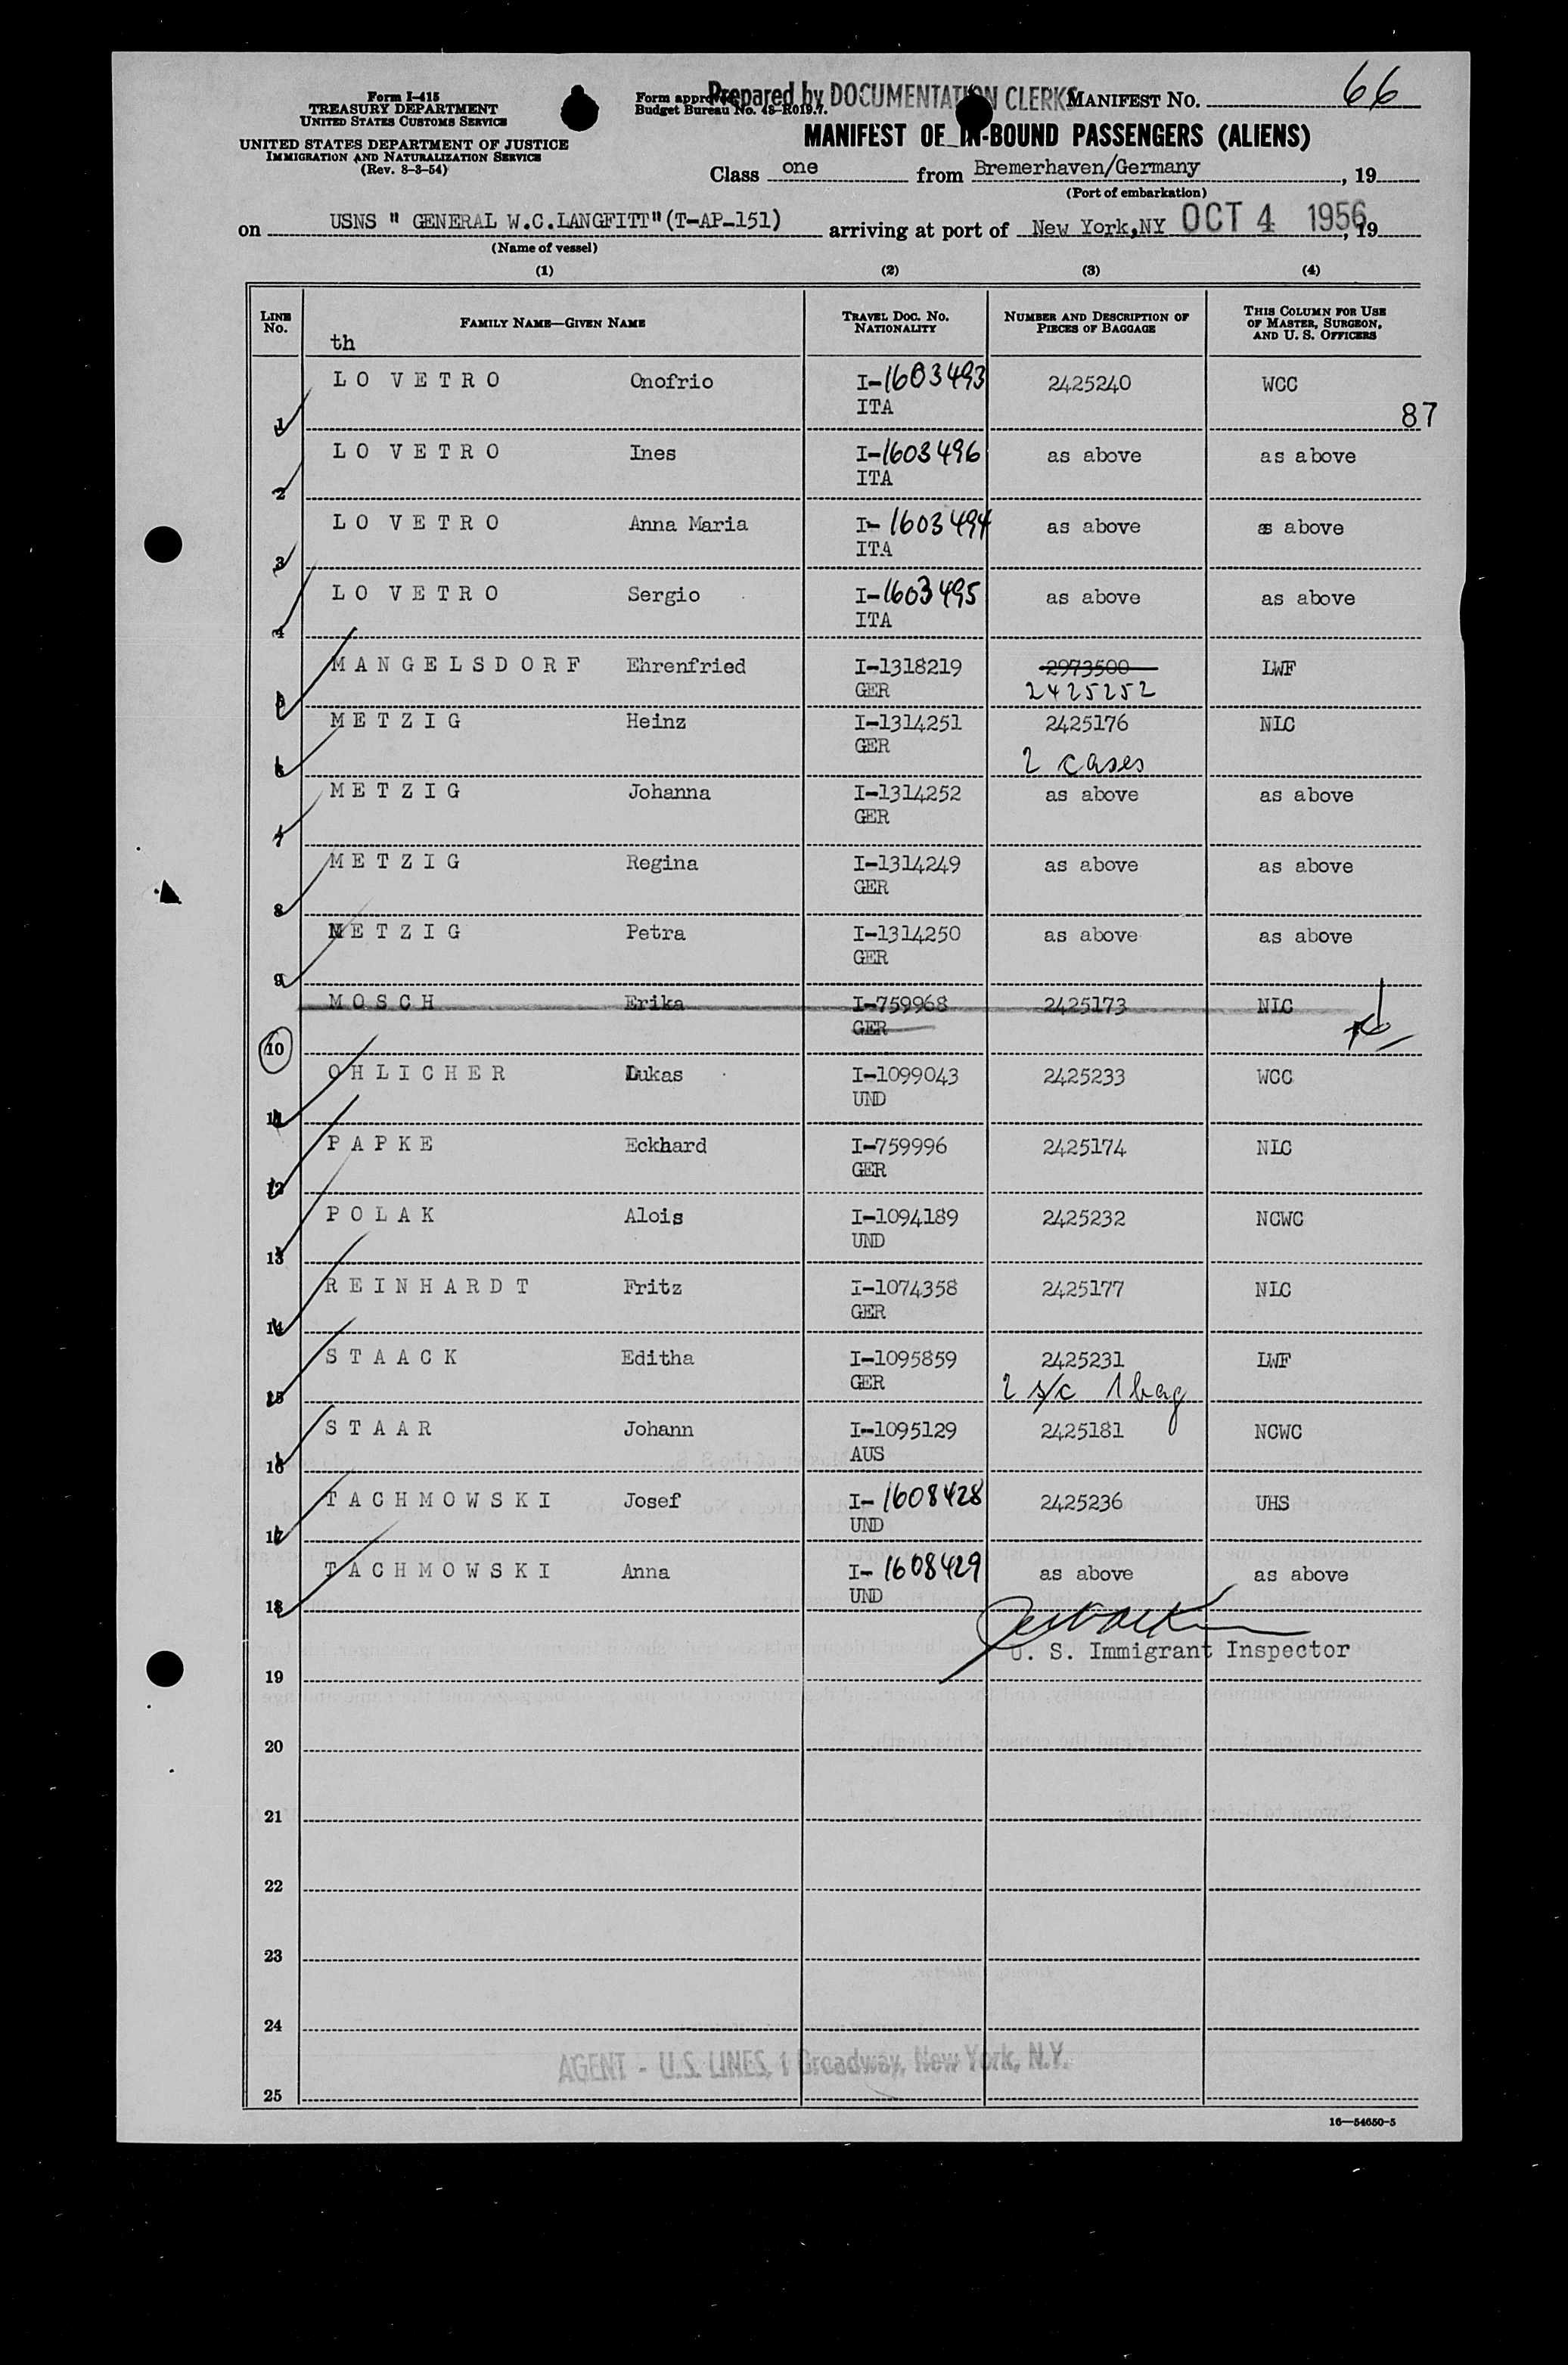 Form I-415
TREASURY DEPARTMENT
UNITED STATES CUSTOMS SERVICE
UNITED STATES DEPARTMENT OF JUSTICE
IMMIGRATION AND NATURALIZATION SERVICE
(Rev. 8-3-54)
Form approved
Budget Bureau No. 43-R019.7.
Prepared by DOCUMENTATION CLERKS
MANIFEST NO. 66
MANIFEST OF IN-BOUND PASSENGERS (ALIENS)
Class one from Bremerhaven/Germany, 19
(Port of embarkation)
on USNS " GENERAL W.C.LANGFITT"(T-AP-151) arriving at port of New York,NY OCT 4 1956, 19
(Name of vessel)
(1) (2) (3) (4)
LINE NO. FAMILY NAME—GIVEN NAME TRAVEL DOC. NO. NATIONALITY NUMBER AND DESCRIPTION OF PIECES OF BAGGAGE THIS COLUMN FOR USE OF MASTER, SURGEON, AND U. S. OFFICERS
th
1 LO VETRO Onofrio I-1603493 2425240 WCC
ITA
87
2 LO VETRO Ines I-1603496 as above as above
ITA
3 LO VETRO Anna Maria I-1603494 as above as above
ITA
4 LO VETRO Sergio I-1603495 as above as above
ITA
5 MANGELSDORF Ehrenfried I-1318219 2973500 LWF
GER 2425252
6 METZIG Heinz I-1314251 2425176 NLC
GER 2 cases
7 METZIG Johanna I-1314252 as above as above
GER
8 METZIG Regina I-1314249 as above as above
GER
9 METZIG Petra I-1314250 as above as above
GER
10 MOSCH Erika I-759968 2425173 NLC
GER
11 OHLICHER Lukas I-1099043 2425233 WCC
UND
12 PAPKE Eckhard I-759996 2425174 NLC
GER
13 POLAK Alois I-1094189 2425232 NCWC
UND
14 REINHARDT Fritz I-1074358 2425177 NLC
GER
15 STAACK Editha I-1095859 2425231 LWF
GER 2 s/c 1 bag
16 STAAR Johann I-1095129 2425181 NCWC
AUS
17 TACHMOWSKI Josef I-1608428 2425236 UHS
UND
18 TACHMOWSKI Anna I-1608429 as above as above
UND
U. S. Immigrant Inspector
19
20
21
22
23
24
AGENT - U.S. LINES, 1 Broadway, New York, N.Y.
25
16—54650-5